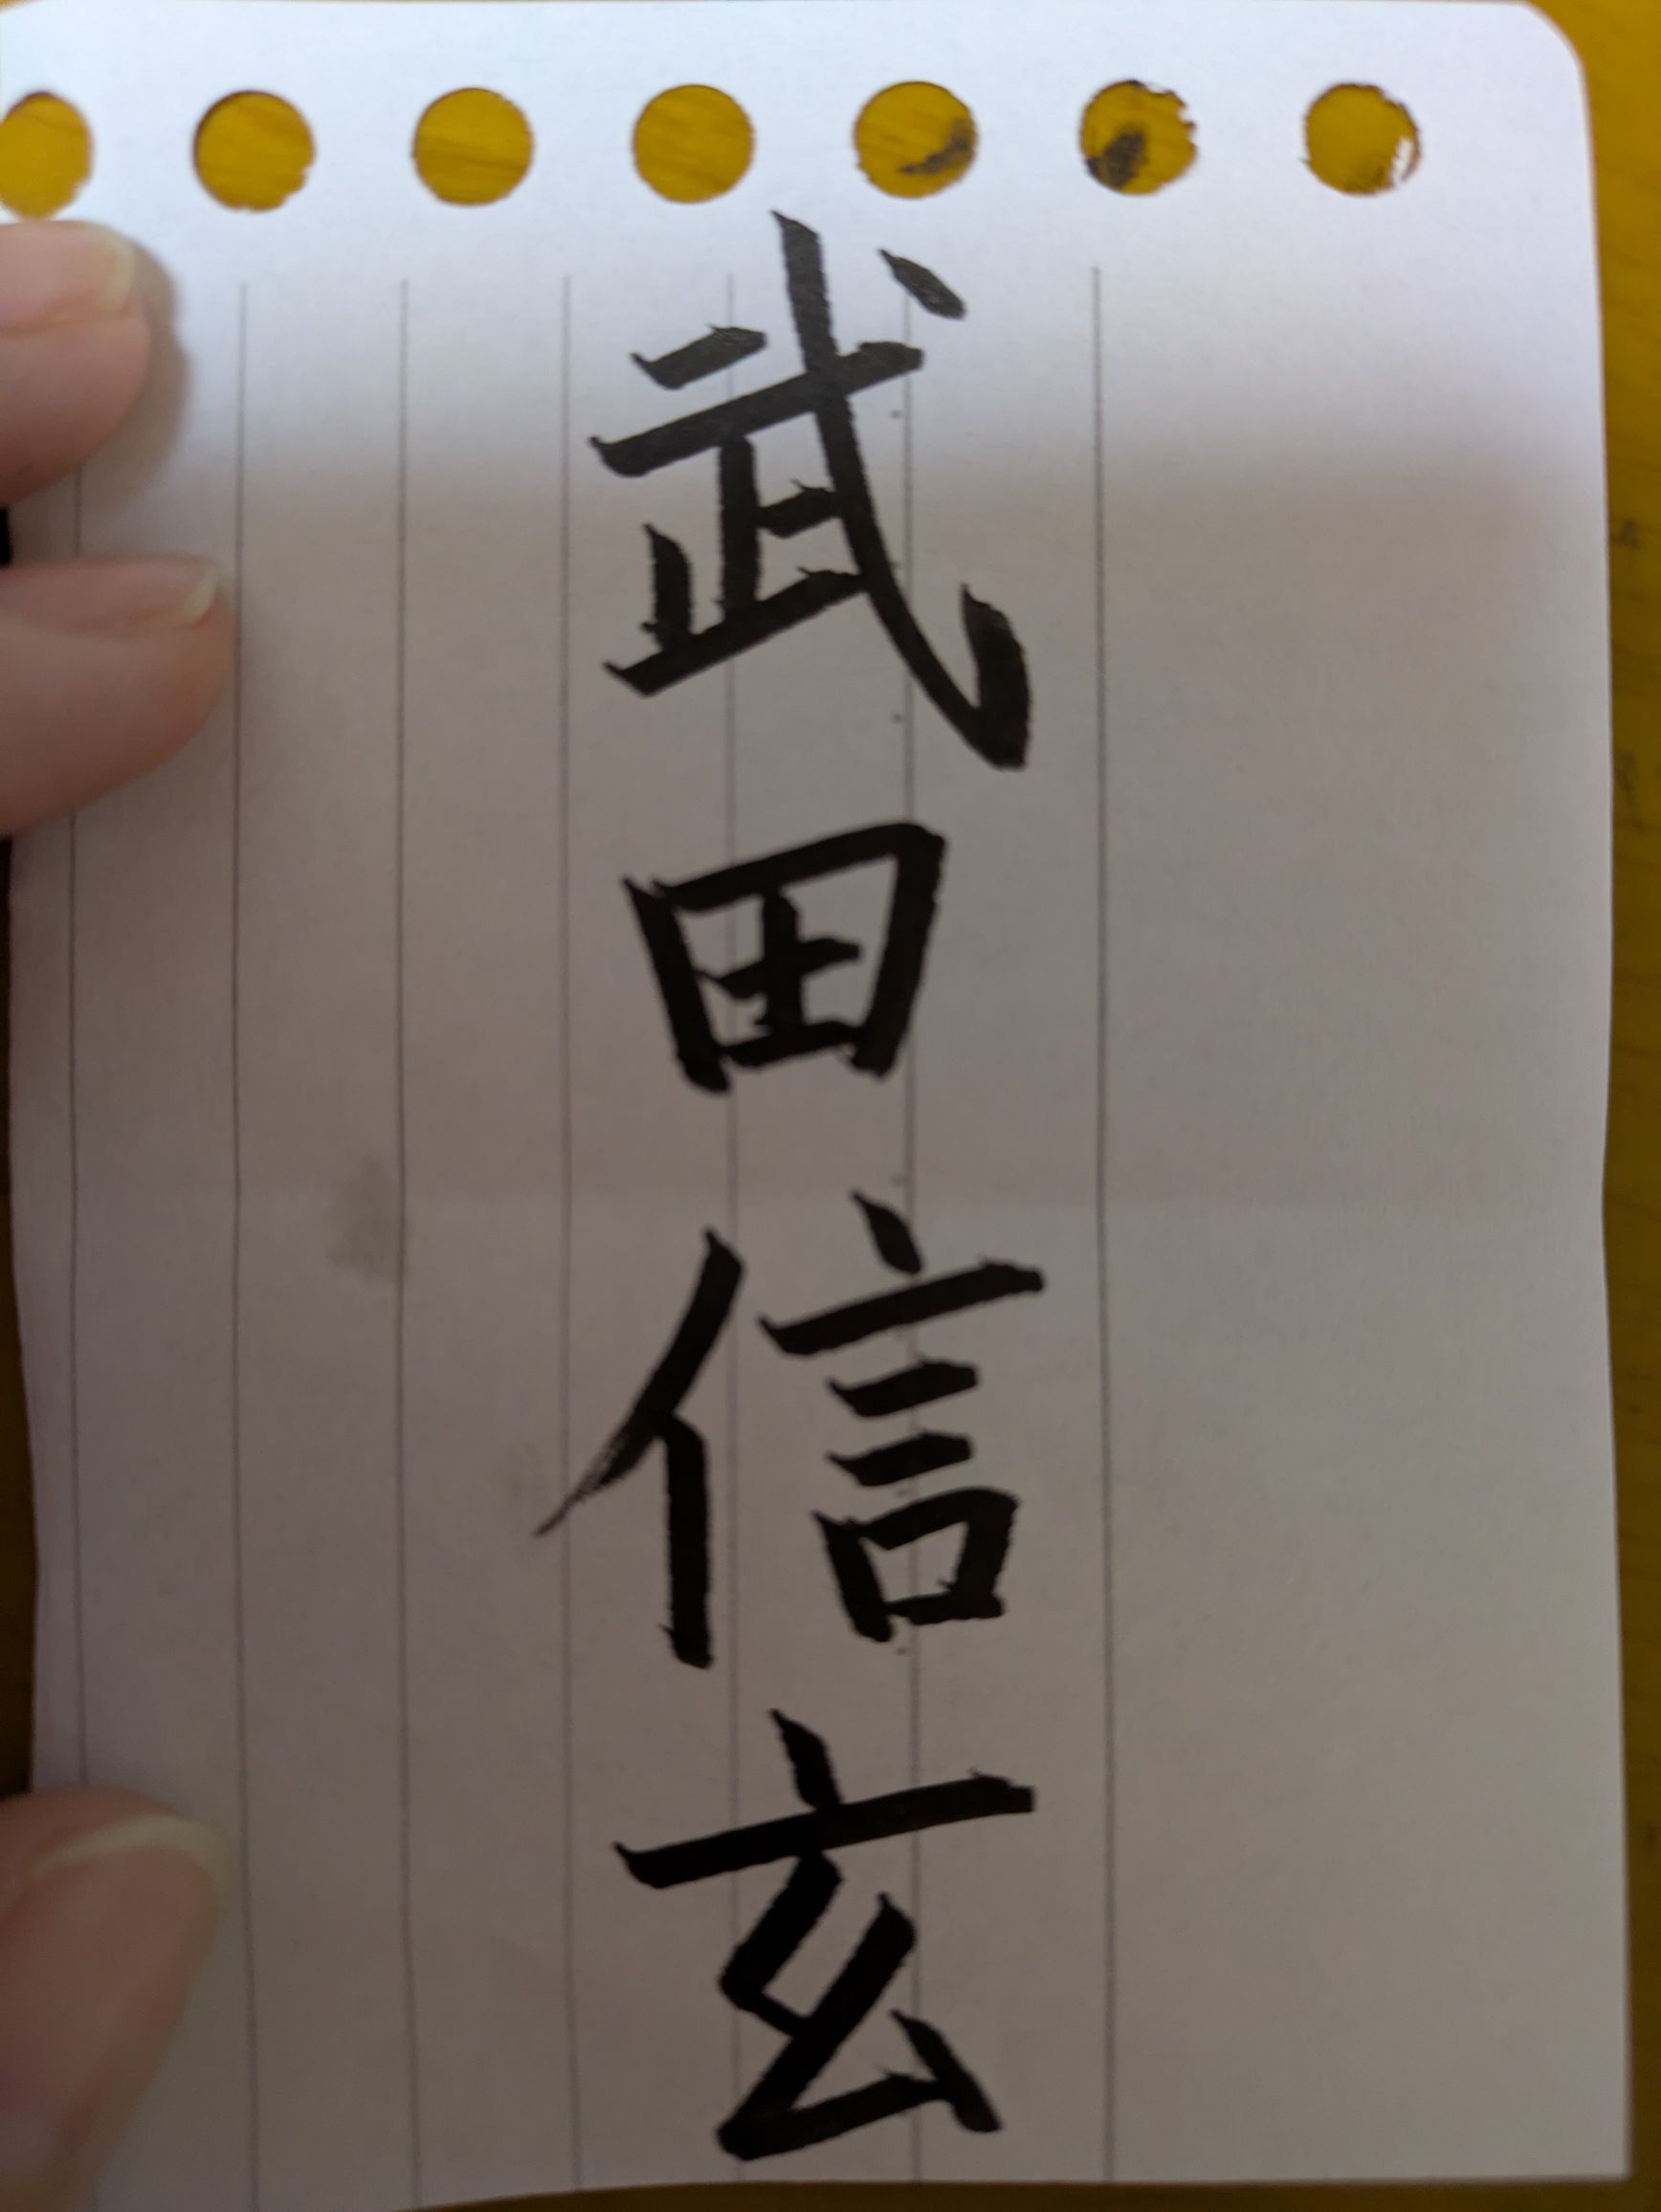 武田信玄